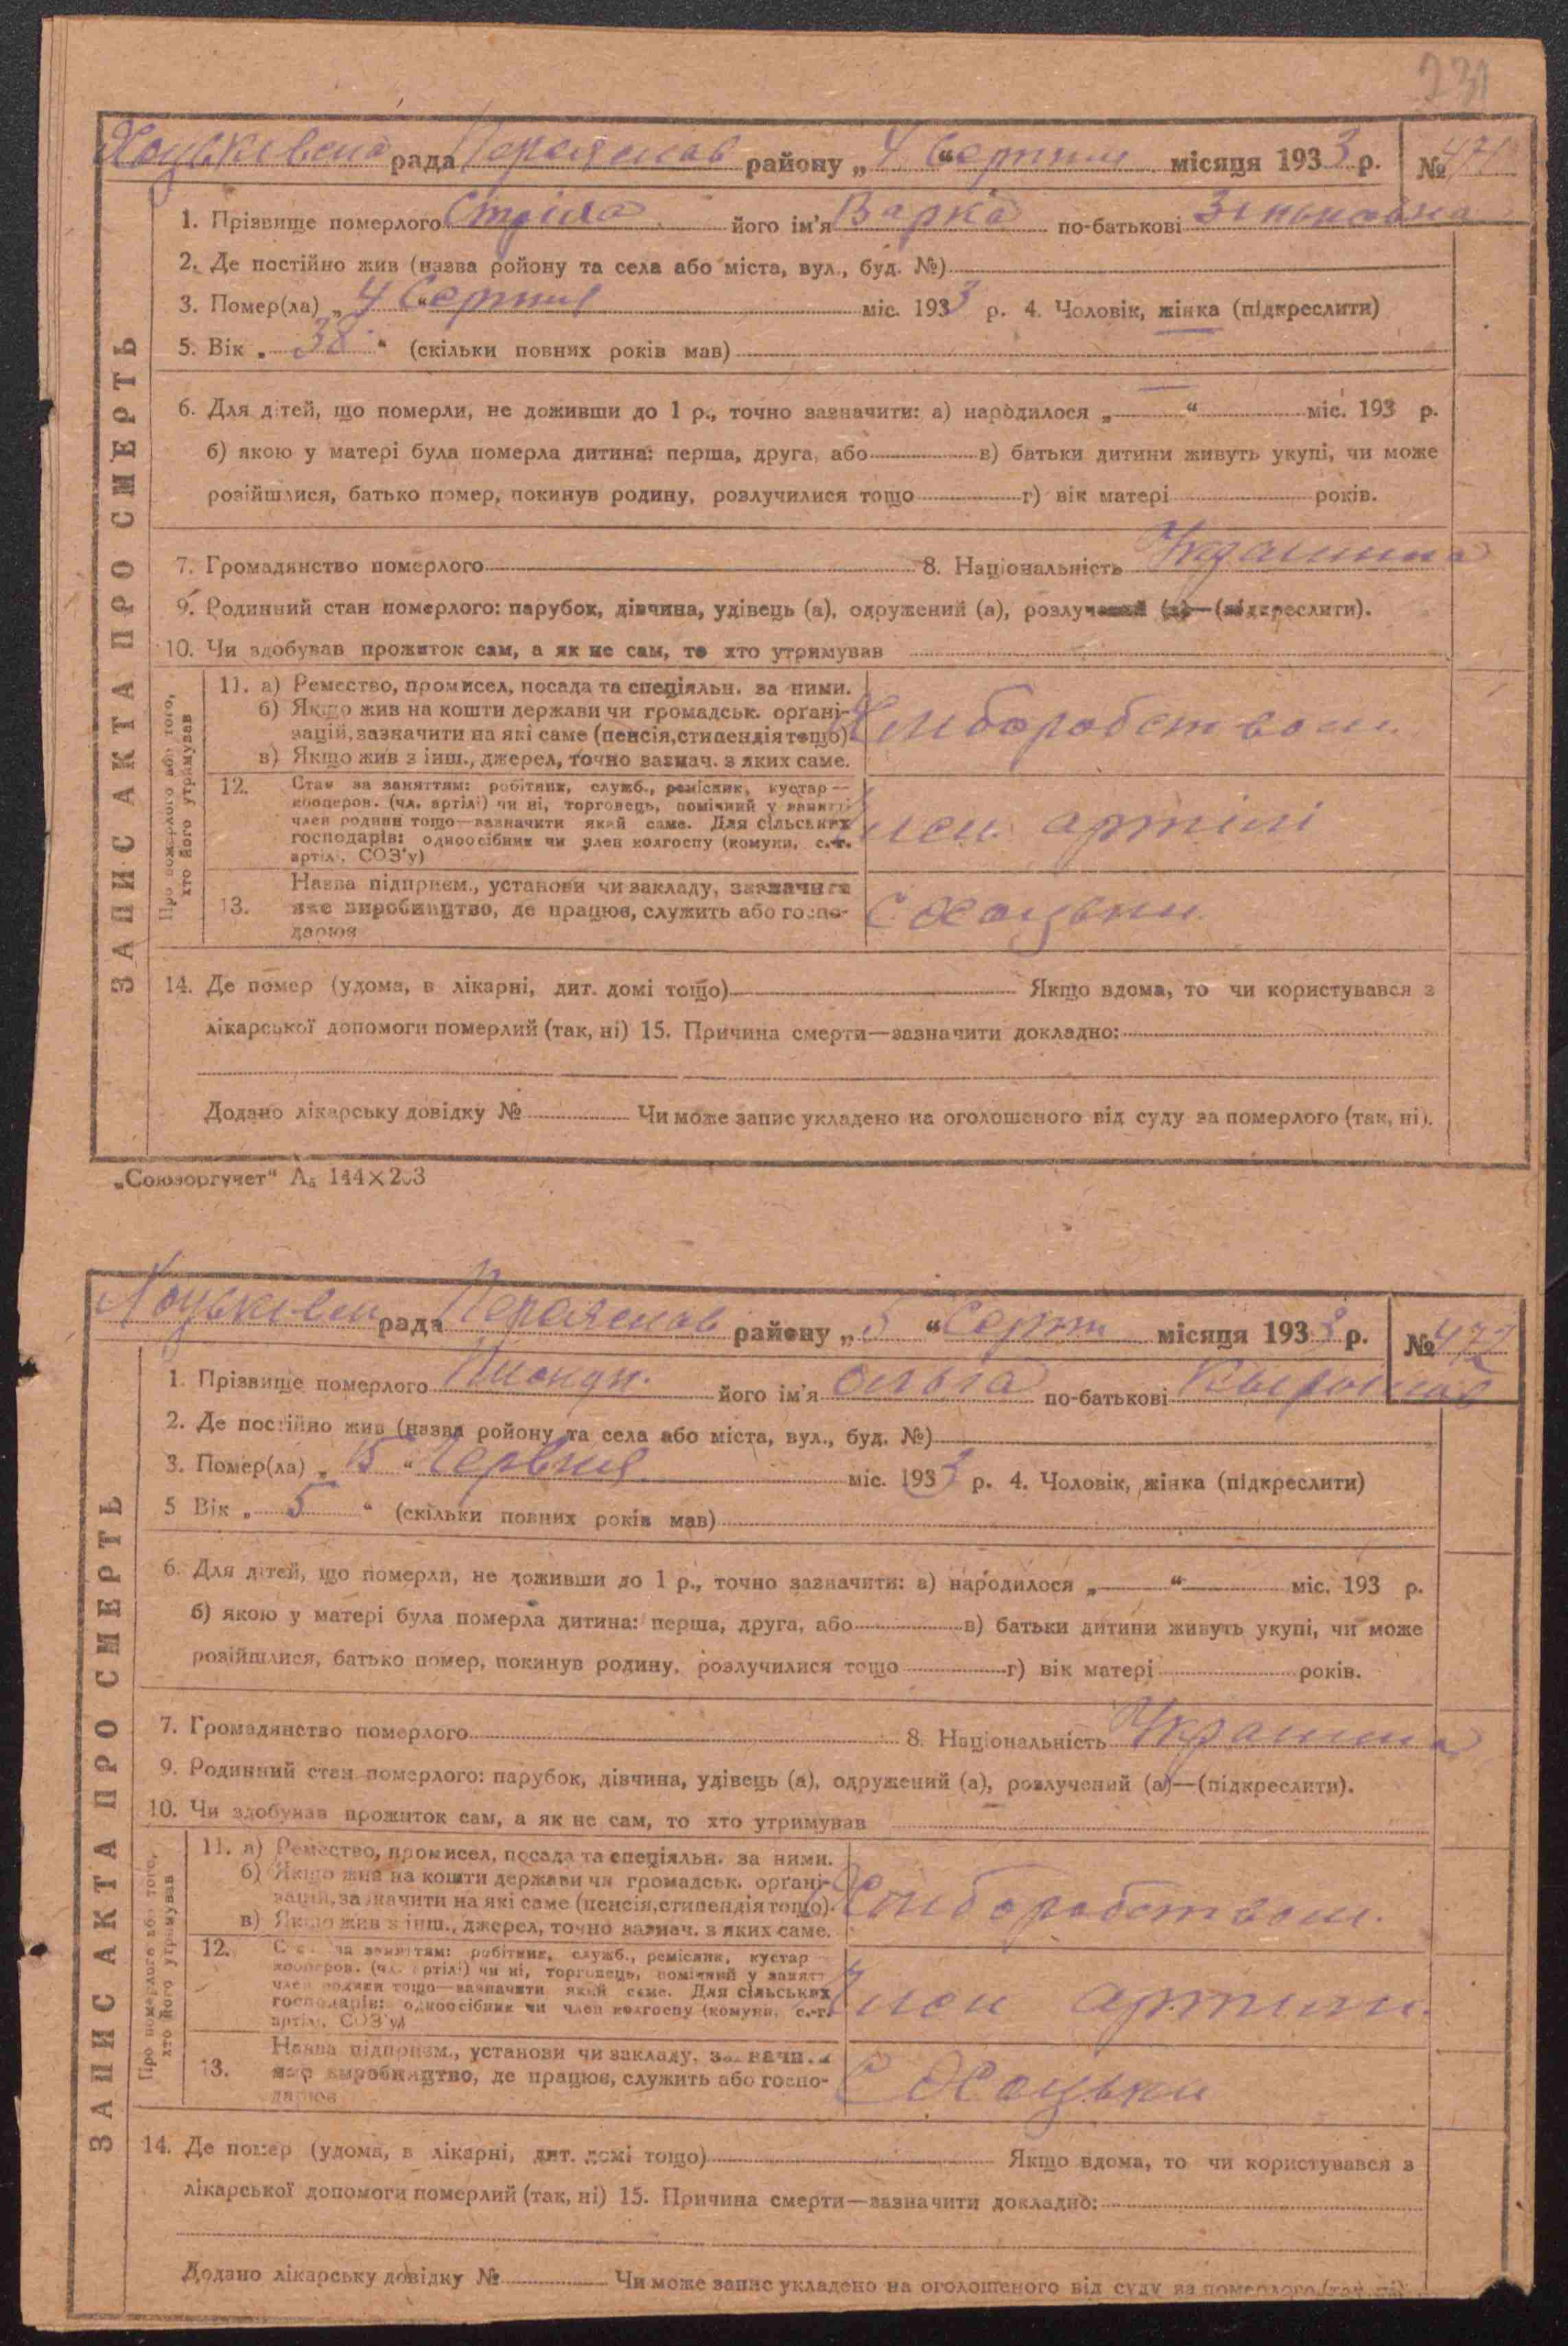 231
Хоцьківська рада Переяслав району „4“ Серпня місяця 1933 р. № 471
1. Прізвище померлого Стріла його ім'я Варка по-батькові Зіньковна
2. Де постійно жив (назва ройону та села або міста, вул., буд. №)
3. Помер(ла) „4“ Серпня міс. 1933 р. 4. Чоловік, жінка (підкреслити)
5. Вік „38“ (скільки повних років мав)
6. Для дітей, що померли, не доживши до 1 р., точно зазначити: а) народилося „ “ міс. 193 р.
б) якою у матері була померла дитина: перша, друга, або в) батьки дитини живуть укупі, чи може
розійшлися, батько помер, покинув родину, розлучилися тощо г) вік матері років.
7. Громадянство померлого 8. Національність Украинка
9. Родинний стан померлого: парубок, дівчина, удівець (а), одружений (а), розлучений (а)—(підкреслити).
10. Чи здобував прожиток сам, а як не сам, то хто утримував
ЗАПИС АКТА ПРО СМЕРТЬ
Про померлого або того,
хто його утримував
11. а) Ремество, промисел, посада та спеціяльн. за ними.
б) Якщо жив на кошти держави чи громадськ. орґані-
зацій, зазначити на які саме (пенсія, стипендія тощо)
в) Якщо жив з інш., джерел, точно зазнач. з яких саме.
Хліборобством.
12. Стан за заняттям: робітник, служб., ремісник, кустар —
кооперов. (чл. артілі) чи ні, торговець, помічний у занятті
член родини тощо—зазначити який саме. Для сільських
господарів: одноосібник чи член колгоспу (комуни, с.-г.
артілі, СОЗ'у)
член артілі
13. Назва підприєм., установи чи закладу, зазначити
яке виробництво, де працює, служить або госпо-
дарює
с Хоцьки
14. Де помер (удома, в лікарні, дит. домі тощо) Якщо вдома, то чи користувався з
лікарської допомоги померлий (так, ні) 15. Причина смерти—зазначити докладно:
Додано лікарську довідку № Чи може запис укладено на оголошеного від суду за померлого (так, ні).
„Союзоргучет“ А5 144×203
Хоцьківська рада Переяслав району „5“ Серпн місяця 1933 р. № 472
1. Прізвище померлого його ім'я Ольга по-батькові
2. Де постійно жив (назва ройону та села або міста, вул., буд. №)
3. Помер(ла) „15“ Червня міс. 1933 р. 4. Чоловік, жінка (підкреслити)
5 Вік „5“ (скільки повних років мав)
6. Для дітей, що померли, не доживши до 1 р., точно зазначити: а) народилося „ “ міс. 193 р.
б) якою у матері була померла дитина: перша, друга, або в) батьки дитини живуть укупі, чи може
розійшлися, батько помер, покинув родину, розлучилися тощо г) вік матері років.
7. Громадянство померлого 8. Національність Украинка
9. Родинний стан померлого: парубок, дівчина, удівець (а), одружений (а), розлучений (а)—(підкреслити).
10. Чи здобував прожиток сам, а як не сам, то хто утримував
ЗАПИС АКТА ПРО СМЕРТЬ
Про померлого або того,
хто його утримував
11. а) Ремество, промисел, посада та спеціяльн. за ними.
б) Якщо жив на кошти держави чи громадськ. орґані-
зацій, зазначити на які саме (пенсія, стипендія тощо).
в) Якщо жив з інш., джерел, точно зазнач. з яких саме.
Хліборобством.
12. Стан за заняттям: робітник, служб., ремісник, кустар
кооперов. (чл. артілі) чи ні, торговець, помічний у занятт
член родини тощо—зазначити який саме. Для сільських
господарів: одноосібник чи член колгоспу (комуни, с.-г.
артілі, СОЗ'у)
член артили.
13. Назва підприєм., установи чи закладу, зазначити
яке виробництво, де працює, служить або госпо-
дарює
С Хоцьки
14. Де помер (удома, в лікарні, дит. домі тощо) Якщо вдома, то чи користувався з
лікарської допомоги померлий (так, ні) 15. Причина смерти—зазначити докладно:
Додано лікарську довідку № Чи може запис укладено на оголошеного від суду за померлого (так, ні)